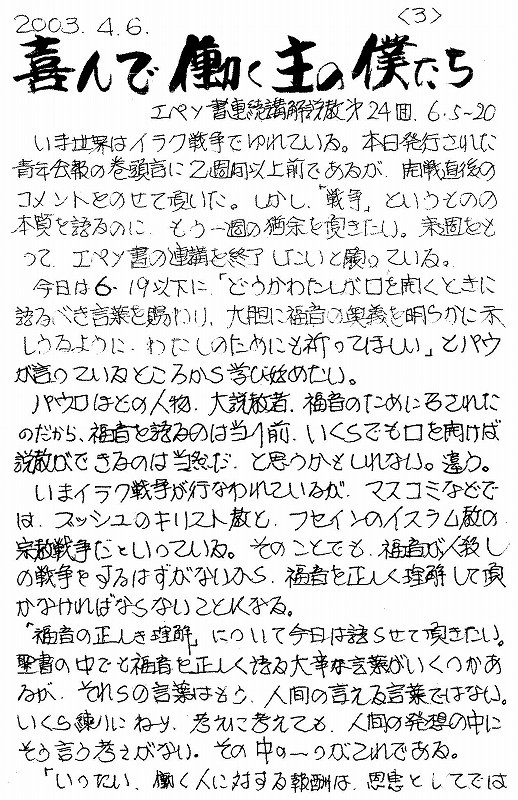 2003.4.6. <3>
喜んで働く主の僕たち
エペソ書連続講解説教第24回. 6.5~20
いま世界はイラク戦争でゆれている。本日発行された
青年会報の巻頭言に2週間以上前であるが、開戦直後の
コメントをのせて頂いた。しかし、「戦争」というものの
本質を語るのに、もう一週の猶余を頂きたい。来週をも
って、エペソ書の連講を終了したいと願っている。
今日は6.19以下に、「どうかわたしが口を開くときに
語るべき言葉を賜わり、大胆に福音の奥義を明らかに示
しうるように、わたしのためにも祈ってほしい」とパウ
が言っているところから学び始めたい。
パウロほどの人物、大説教者、福音のために召された
のだから、福音を語るのは当り前、いくらでも口を開けば
説教ができるのは当然だ、と思うかもしれない。違う。
いまイラク戦争が行なわれているが、マスコミなどで
は、ブッシュのキリスト教と、フセインのイスラム教の
宗教戦争だといっている。そのことでも、福音が人殺し
の戦争をするはずがないから、福音を正しく理解して頂
かなければならないことになる。
「福音の正しき理解」について今日は語らせて頂きたい。
聖書の中でも福音を正しく語る大事な言葉がいくつかあ
るが、それらの言葉はもう、人間の言える言葉ではない。
いくら練りにねり、考えに考えても、人間の発想の中に
そう言う考えがない。その中の一つがこれである。
「いったい、働く人に対する報酬は、恩恵としてでは